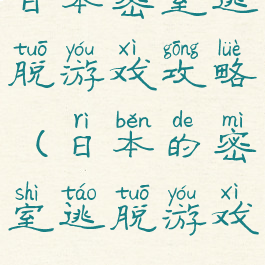 日本密室逃
tuō yóu xì gōng lüè
脱游戏攻略
rì běn de mì
（日本的密
shì táo tuō yóu xì
室逃脱游戏